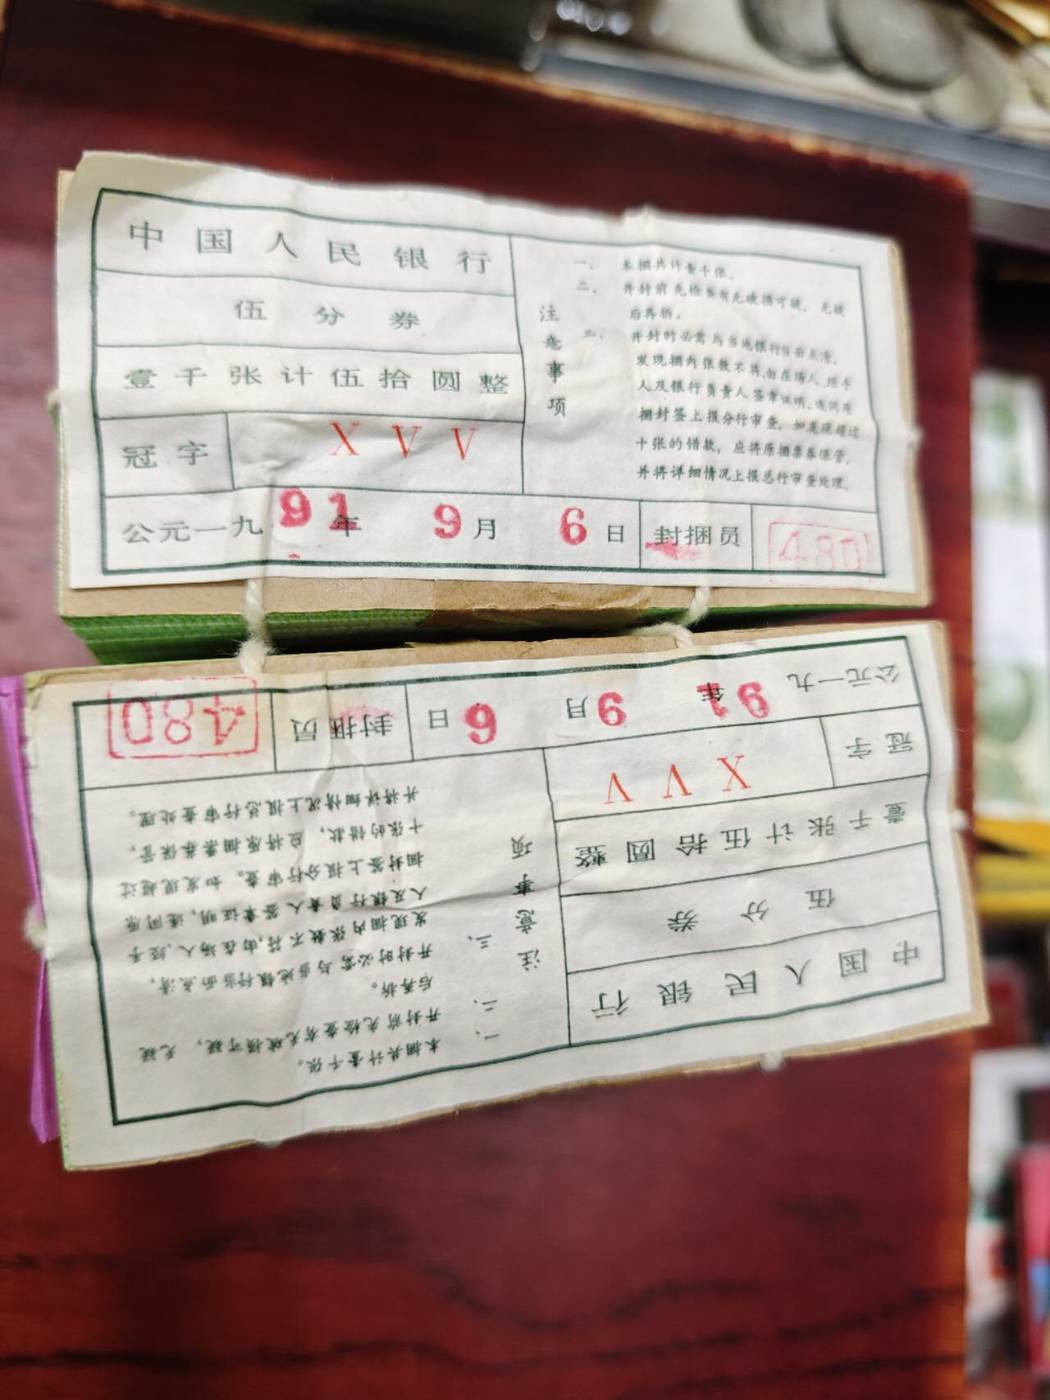 中国人民银行
伍分券
壹千张计伍拾圆整
冠字 X V V
公元一九91年 9月 6日 封捆员 480
注意事项
一、本捆共计壹千张。
二、开封前先检查有无破损可疑，无疑
后再拆。
三、开封时必需与当地银行当面点清，
发现捆内张数不符，由在场人、经手
人及银行负责人签章证明，连同原
捆封签上报分行审查。如发现超过
十张的错款，应将原捆票券保管，
并将详细情况上报总行审查处理。
中国人民银行
伍分券
壹千张计伍拾圆整
冠字 X V V
公元一九91年 9月 6日 封捆员 480
注意事项
一、本捆共计壹千张。
二、开封前先检查有无破损可疑，无疑
后再拆。
三、开封时必需与当地银行当面点清，
发现捆内张数不符，由在场人、经手
人及银行负责人签章证明，连同原
捆封签上报分行审查。如发现超过
十张的错款，应将原捆票券保管，
并将详细情况上报总行审查处理。